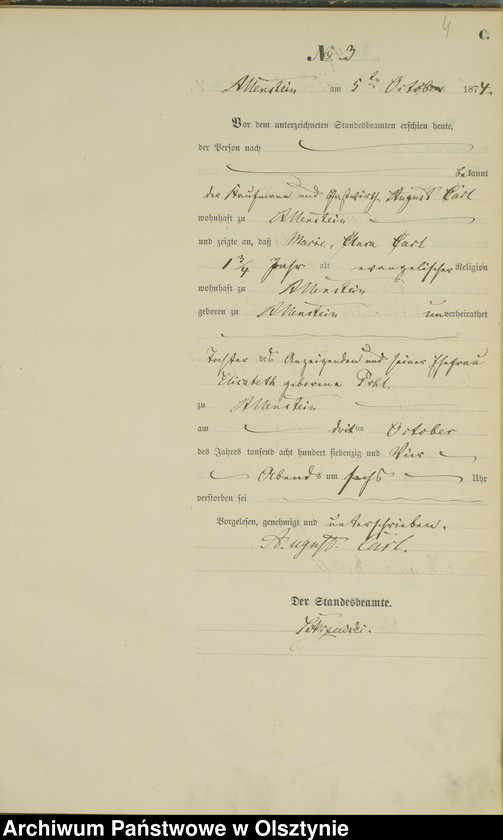 4
C.
No. 3
Allenstein am 5ten October 1874.
Vor dem unterzeichneten Standesbeamten erschien heute,
der Person nach
bekannt
der Kaufmann und Gastwirth August Carl
wohnhaft zu Allenstein
und zeigte an, daß Marie, Clara Carl
1 3/4 Jahr alt evangelischer Religion
wohnhaft zu Allenstein
geboren zu Allenstein unverheirathet
Tochter des Anzeigenden und seiner Ehefrau
Elisabeth geborene
zu Allenstein
am dritten October
des Jahres tausend acht hundert siebenzig und Vier
Abends um sechs Uhr
verstorben sei
Vorgelesen, genehmigt und unterschrieben.
August Carl.
Der Standesbeamte.
Archiwum Państwowe w Olsztynie